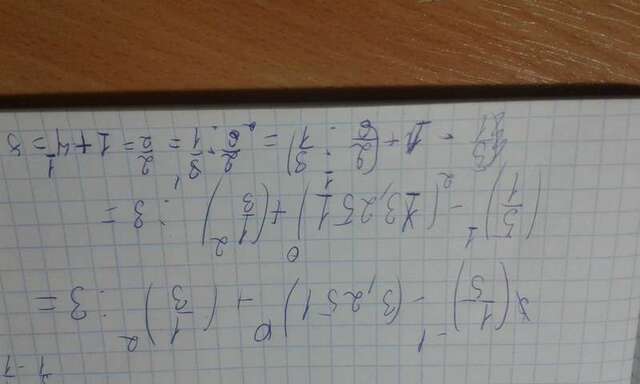 (1/5)^-1 - (3,251)^0 + (1/3)^2 : 3 =
(5/1)^1 - (13,251)^0 + (1/3^2) : 3 =
- 1 + (2/6 : 3/1) = 2/6 : 3/1 = 2/2 = 1 + 4 =